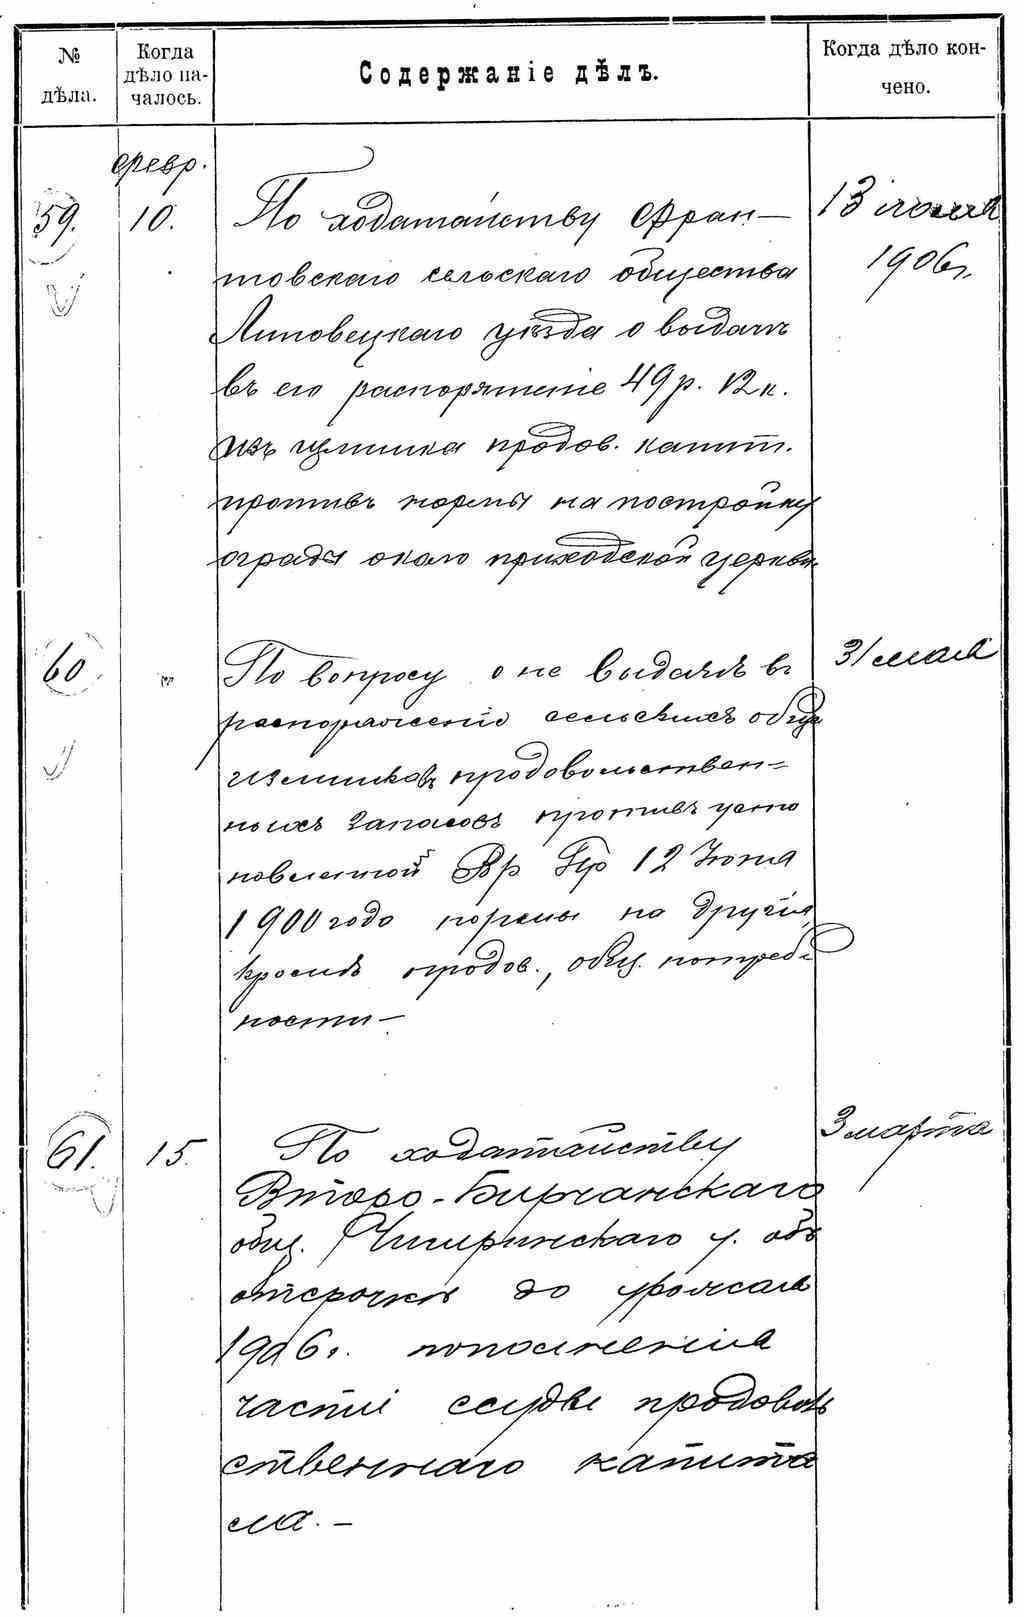 № дѣла.
Когда дѣло на-
чалось.
Содержаніе дѣлъ.
Когда дѣло кон-
чено.
Февр.
59. 10. По ходатайству Фран-
товскаго сельскаго общества
Липовецкаго уѣзда о выдачѣ
въ его распоряженіе 49 р. 12 к.
изъ излишка продов. капит.
противъ нормы на постройку
ограды около приходской церкви
13 іюля
1906 г.
60 По вопросу о не выдачѣ въ
распоряженіе сельскихъ общ
излишковъ продовольствен=
ныхъ запасовъ противъ уста
новленной Вр Пр 12 Іюня
1900 года нормы на другія,
кромѣ продов., общ. потреб
ности-
31 мая
61. 15. По ходатайству
Второ-Бирчанскаго
общ. Чигиринскаго у. объ
отсрочкѣ до урожая
1906 г. пополненія
части ссуды продоволь
ственнаго капита
ла. -
3 марта